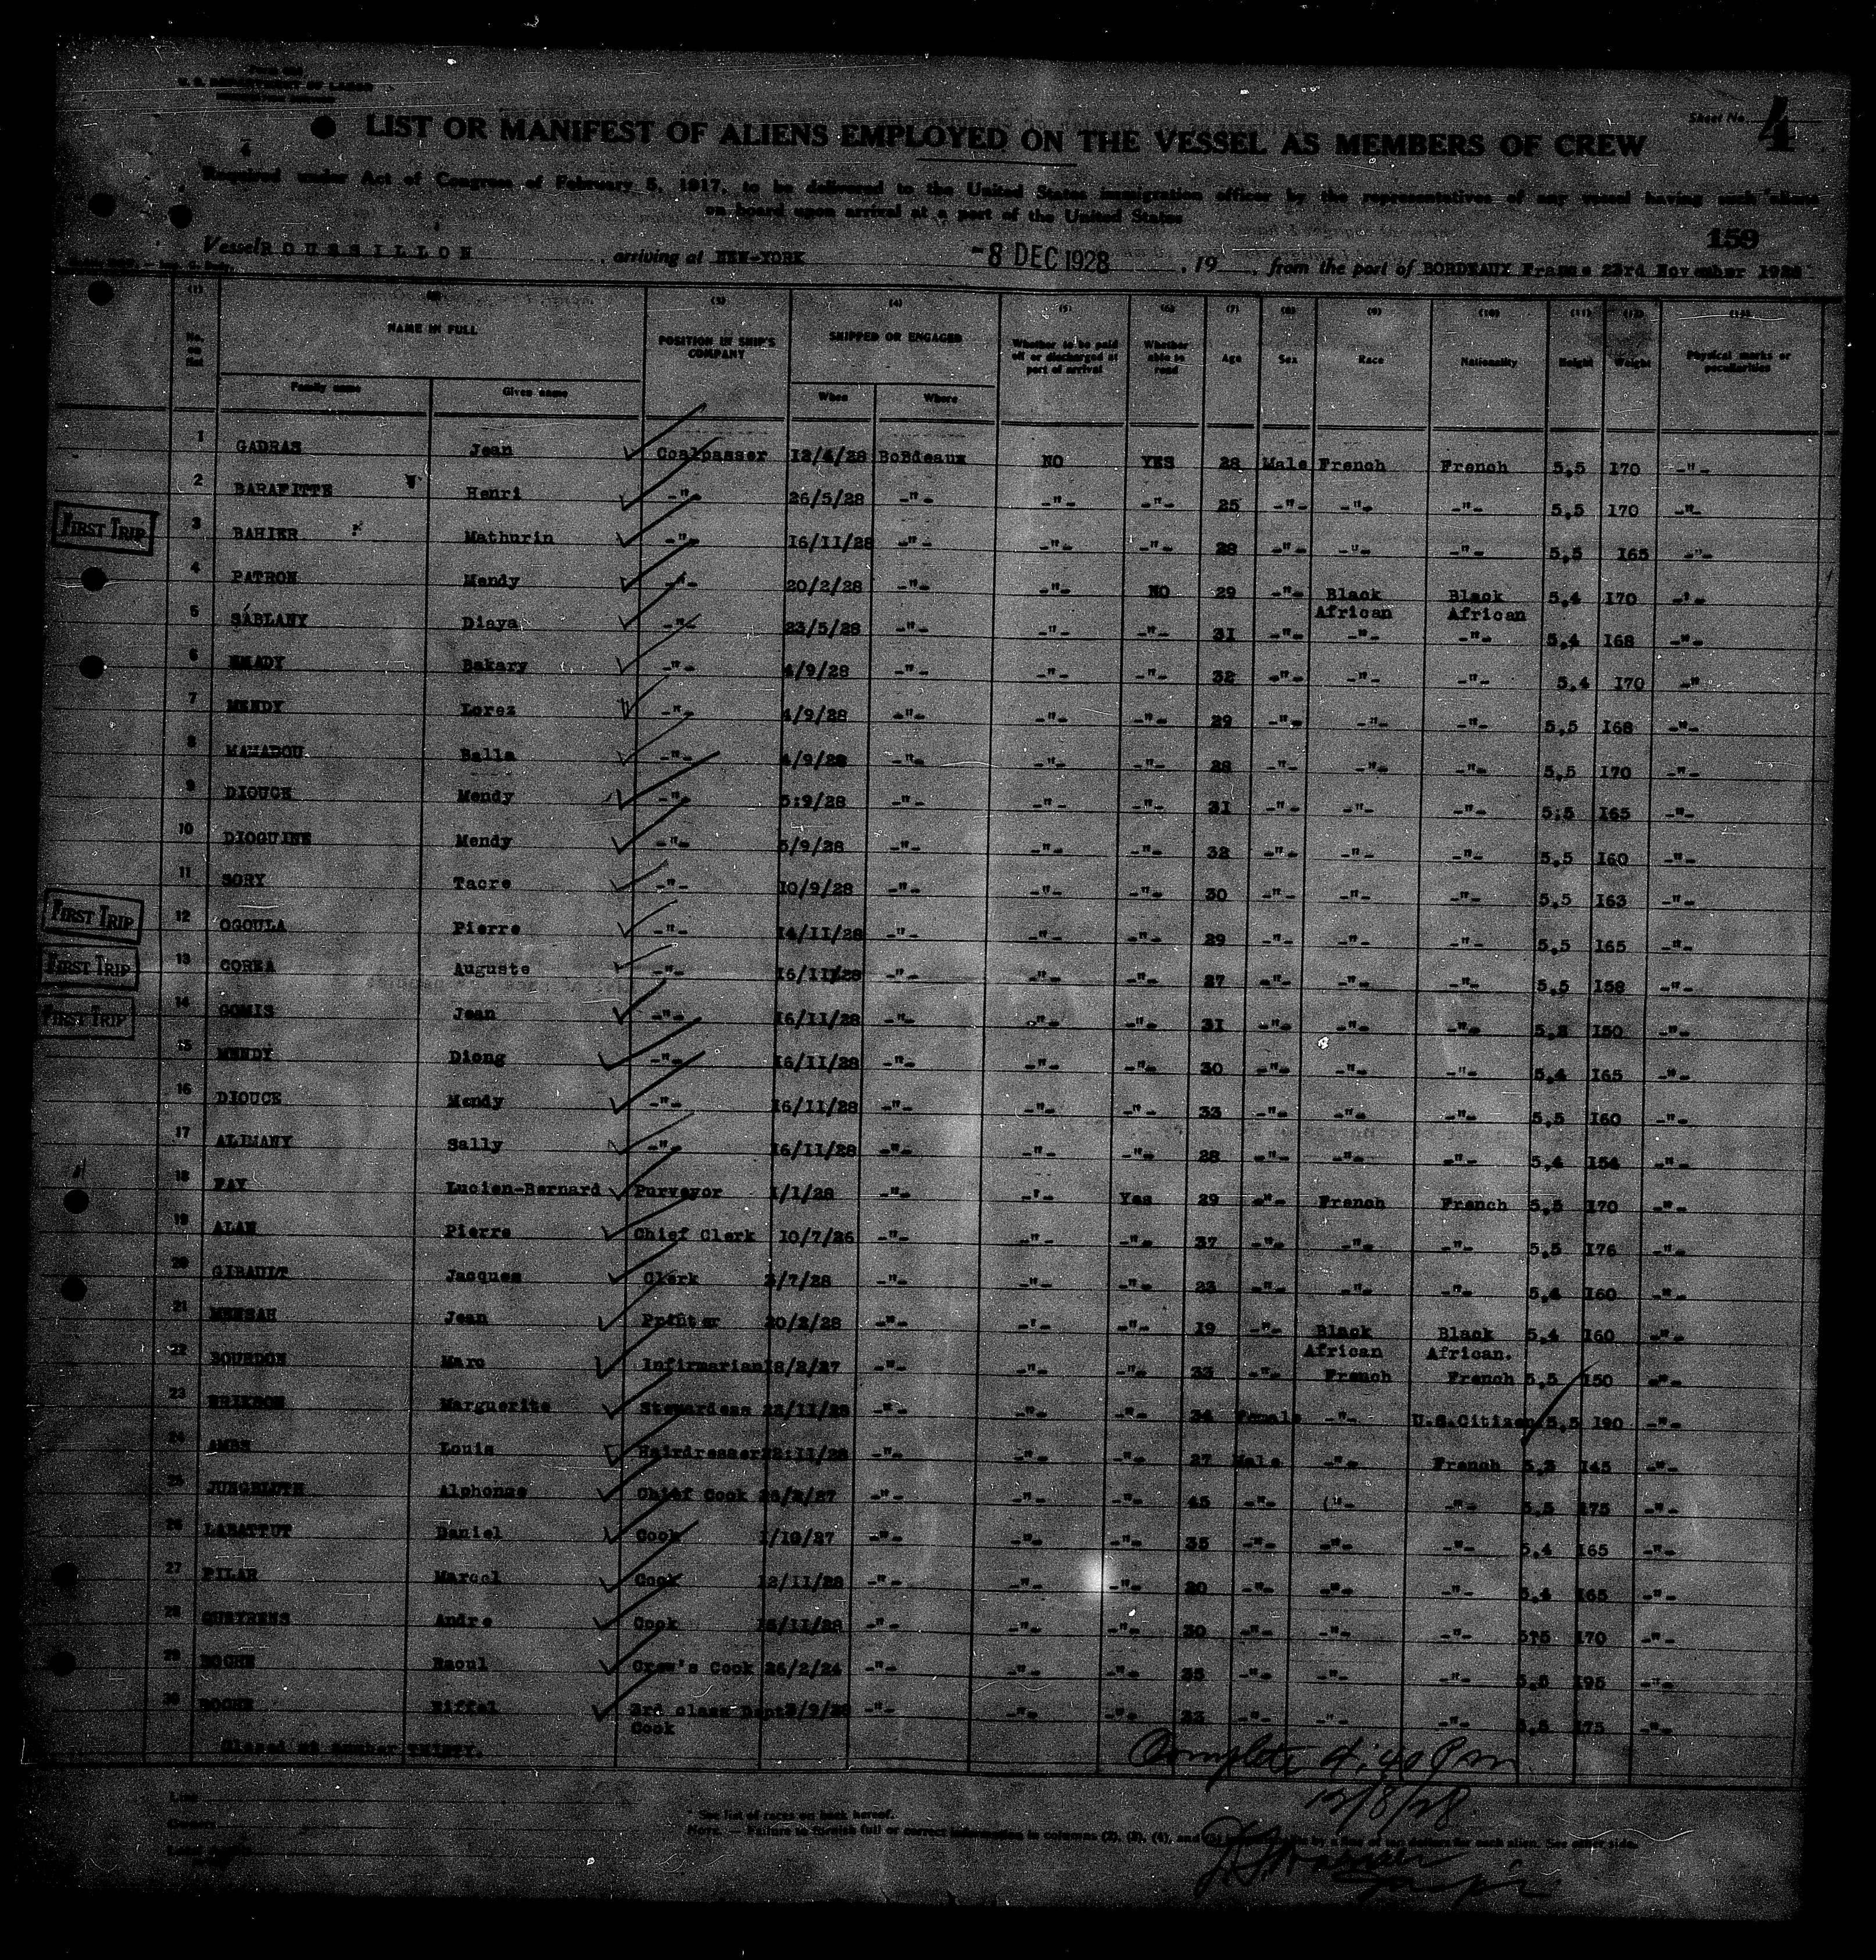 U. S. DEPARTMENT OF LABOR
Sheet No. 4
LIST OR MANIFEST OF ALIENS EMPLOYED ON THE VESSEL AS MEMBERS OF CREW
Required under Act of Congress of February 5, 1917, to be delivered to the United States immigration officer by the representatives of any vessel having such aliens
on board upon arrival at a port of the United States
159
Vessel ROUSSILLON, arriving at NEW-YORK -8 DEC 1928, 19, from the port of BORDEAUX France 23rd November 1928
(1) (2) (3) (4) (5) (6) (7) (8) (9) (10) (11) (12)
No. on list NAME IN FULL POSITION IN SHIP'S COMPANY SHIPPED OR ENGAGED Whether to be paid off or discharged at port of arrival Whether able to read Age Sex Race Nationality Height Weight Physical marks or peculiarities
Family name Given name When Where
1 GADRAS Jean Coalpasser 12/4/28 BoBdeaux NO YES 28 Male French French 5,5 170 -"-
2 BARAFITTE Henri -"- 26/5/28 -"- -"- -"- 25 -"- -"- -"- 5,5 170 -"-
FIRST TRIP 3 BAHIER Mathurin -"- 16/11/28 -"- -"- -"- 28 -"- -"- -"- 5,5 165 -"-
4 PATRON Mendy -"- 20/2/28 -"- -"- NO 29 -"- Black African Black African 5,4 170 -"-
5 SABLANY Diaya -"- 23/5/28 -"- -"- -"- 31 -"- -"- -"- 5,4 168 -"-
6 Bakary -"- 4/9/28 -"- -"- -"- 32 -"- -"- -"- 5,4 170 -"
7 MENDY Lorez -"- 4/9/28 -"- -"- -"- 29 -"- -"- -"- 5,5 168 -"-
8 MAMADOU Balla -"- 4/9/28 -"- -"- -"- 28 -"- -"- -"- 5,5 170 -"-
9 DIOUCE Mendy -"- 5:9/28 -"- -"- -"- 31 -"- -"- -"- 5:5 165 -"-
10 DIOGUINE Mendy -"- 5/9/28 -"- -"- -"- 32 -"- -"- -"- 5,5 160 -"-
11 SORY Tacre -"- 10/9/28 -"- -"- -"- 30 -"- -"- -"- 5,5 163 -"-
FIRST TRIP 12 OGOULA Pierre -"- 14/11/28 -"- -"- -"- 29 -"- -"- -"- 5,5 165 -"-
FIRST TRIP 13 COREA Auguste -"- 16/11/28 -"- -"- -"- 27 -"- -"- -"- 5,5 158 -"-
FIRST TRIP 14 GOMIS Jean -"- 16/11/28 -"- -"- -"- 31 -"- -"- -"- 150 -"-
15 MENDY Diong -"- 16/11/28 -"- -"- -"- 30 -"- -"- -"- 5,4 165 -"-
16 DIOUCE Mendy -"- 16/11/28 -"- -"- -"- 33 -"- -"- -"- 5,5 160 -"-
17 ALIMANY Sally -"- 16/11/28 -"- -"- -"- 28 -"- -"- -"- 5,4 154 -"-
18 Lucien-Bernard Purveyor 1/1/28 -"- -"- Yes 29 -"- French French 5,5 170 -"-
19 ALAN Pierre Chief Clerk 10/7/26 -"- -"- -"- 37 -"- -"- -"- 5,5 176 -"-
20 GIRAULT Jacques Clerk /7/28 -"- -"- -"- 23 -"- -"- -"- 5,4 160 -"-
21 MENSAH Jean 20/2/28 -"- -"- -"- 19 -"- Black African Black African. 5,4 160 -"-
22 BOURDON Marc Infirmarian 18/2/27 -"- -"- -"- 33 -"- French French 5,5 150 -"-
23 Marguerite Stewardess 22/11/28 -"- -"- -"- 34 Female -"- U.S.Citizen 5,5 190 -"-
24 Louis Hairdresser 22:11/28 -"- -"- -"- 27 Male -"- French 145 -"-
25 JUNGBLUTH Alphonse Chief Cook -"- -"- -"- 45 -"- -"- -"- 5,5 175 -"-
26 LABATTUT Daniel Cook 1/10/27 -"- -"- -"- 35 -"- -"- -"- 5,4 165 -"-
27 PILAR Marcel Cook 12/11/28 -"- -"- -"- -"- -"- -"- 5,4 165 -"-
28 Andre Cook /11/28 -"- -"- -"- 30 -"- -"- -"- 170 -"-
29 ROCHE Raoul Crew's Cook 26/2/24 -"- -"- -"- -"- -"- -"- 195 -"-
30 ROCHE Eiffel 3rd class Dept /9/28 -"- -"- -"- -"- -"- -"- 175 -"-
Cook
Closed at number THIRTY.
Complete 4:40 Pm
12/8/28
Line
Owners
* See list of races on back hereof.
NOTE. — Failure to furnish full or correct information in columns (2), (3), (4), and (5) by a fine of ten dollars for each alien. See other side.